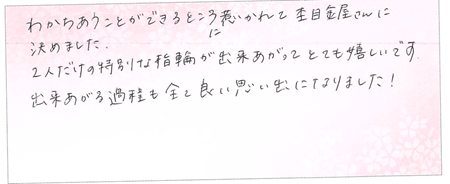 わかちあうことができるところに惹かれて杢目金屋さんに
決めました。
2人だけの特別な指輪が出来あがってとても嬉しいです
出来あがる過程も全て良い思い出になりました！